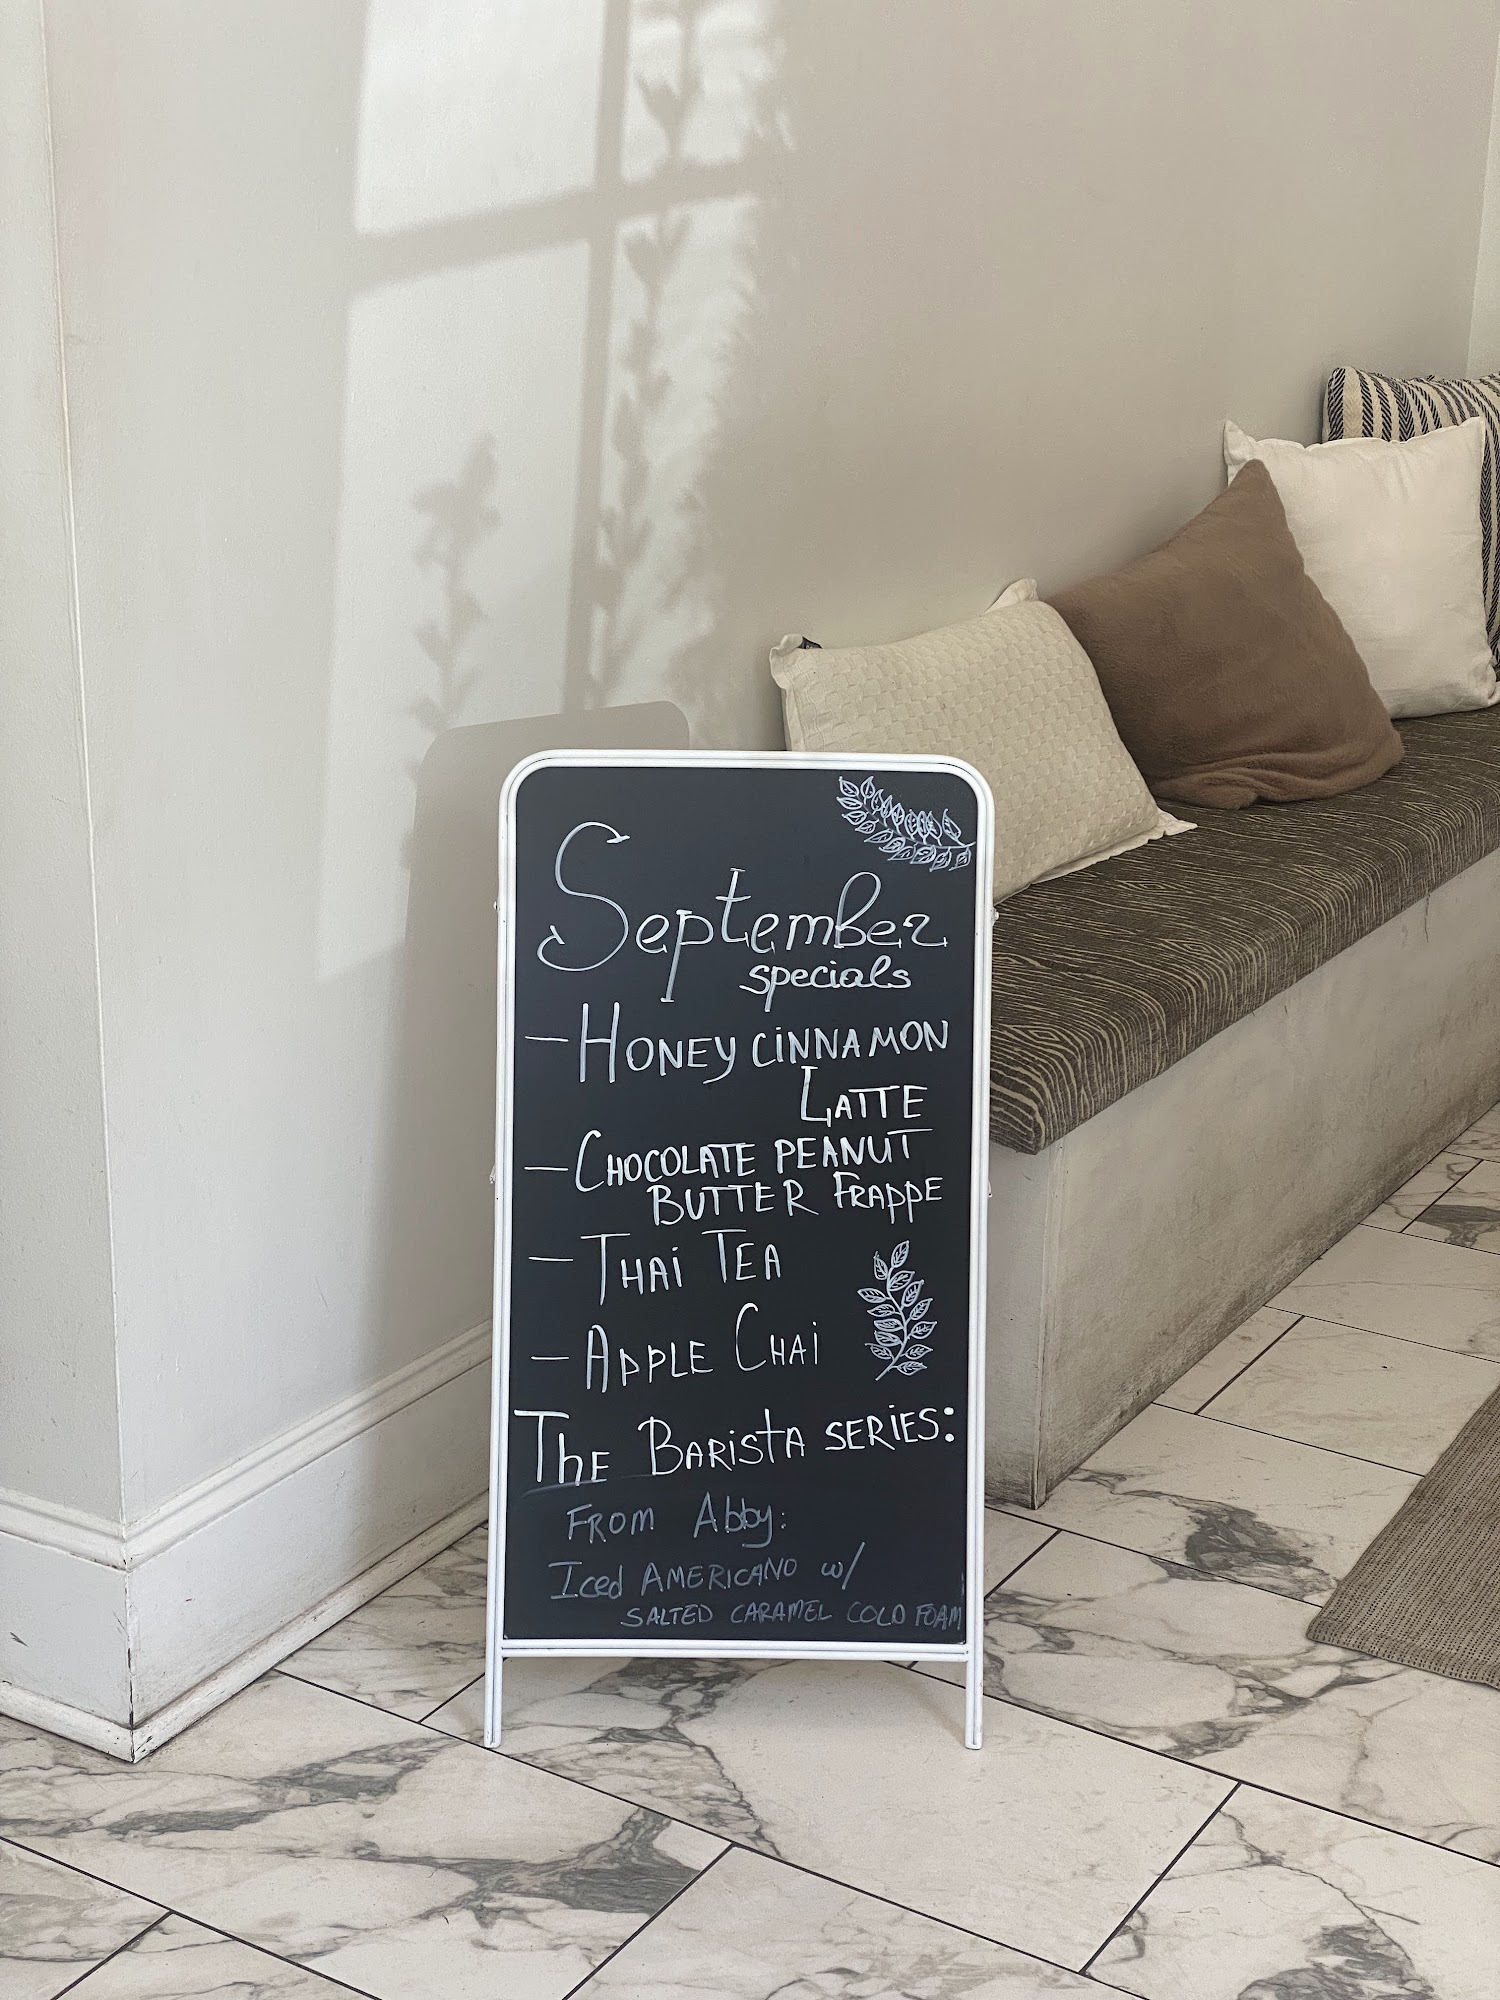 September
specials
- HONEY CINNAMON
LATTE
- CHOCOLATE PEANUT
BUTTER FRAPPE
- THAI TEA
- APPLE CHAI
THE BARISTA SERIES:
FROM Abby:
Iced AMERICANO w/
SALTED CARAMEL COLD FOAM